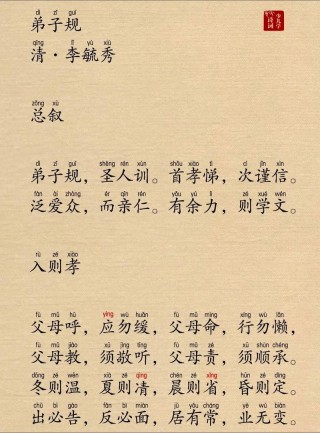 dì zǐ guī
弟子规
qīng lǐ yù xiù
清·李毓秀
zǒng xù
总叙
dì zǐ guī shèng rén xùn shǒu xiào tì cì jǐn xìn
弟子规，圣人训。首孝悌，次谨信。
fàn ài zhòng ér qīn rén yǒu yú lì zé xué wén
泛爱众，而亲仁。有余力，则学文。
rù zé xiào
入则孝
fù mǔ hū yìng wù huǎn fù mǔ mìng xíng wù lǎn
父母呼，应勿缓，父母命，行勿懒，
fù mǔ jiào xū jìng tīng fù mǔ zé xū shùn chéng
父母教，须敬听，父母责，须顺承。
dōng zé wēn xià zé qìng chén zé xǐng hūn zé dìng
冬则温，夏则凊，晨则省，昏则定。
chū bì gào fǎn bì miàn jū yǒu cháng yè wú biàn
出必告，反必面，居有常，业无变。